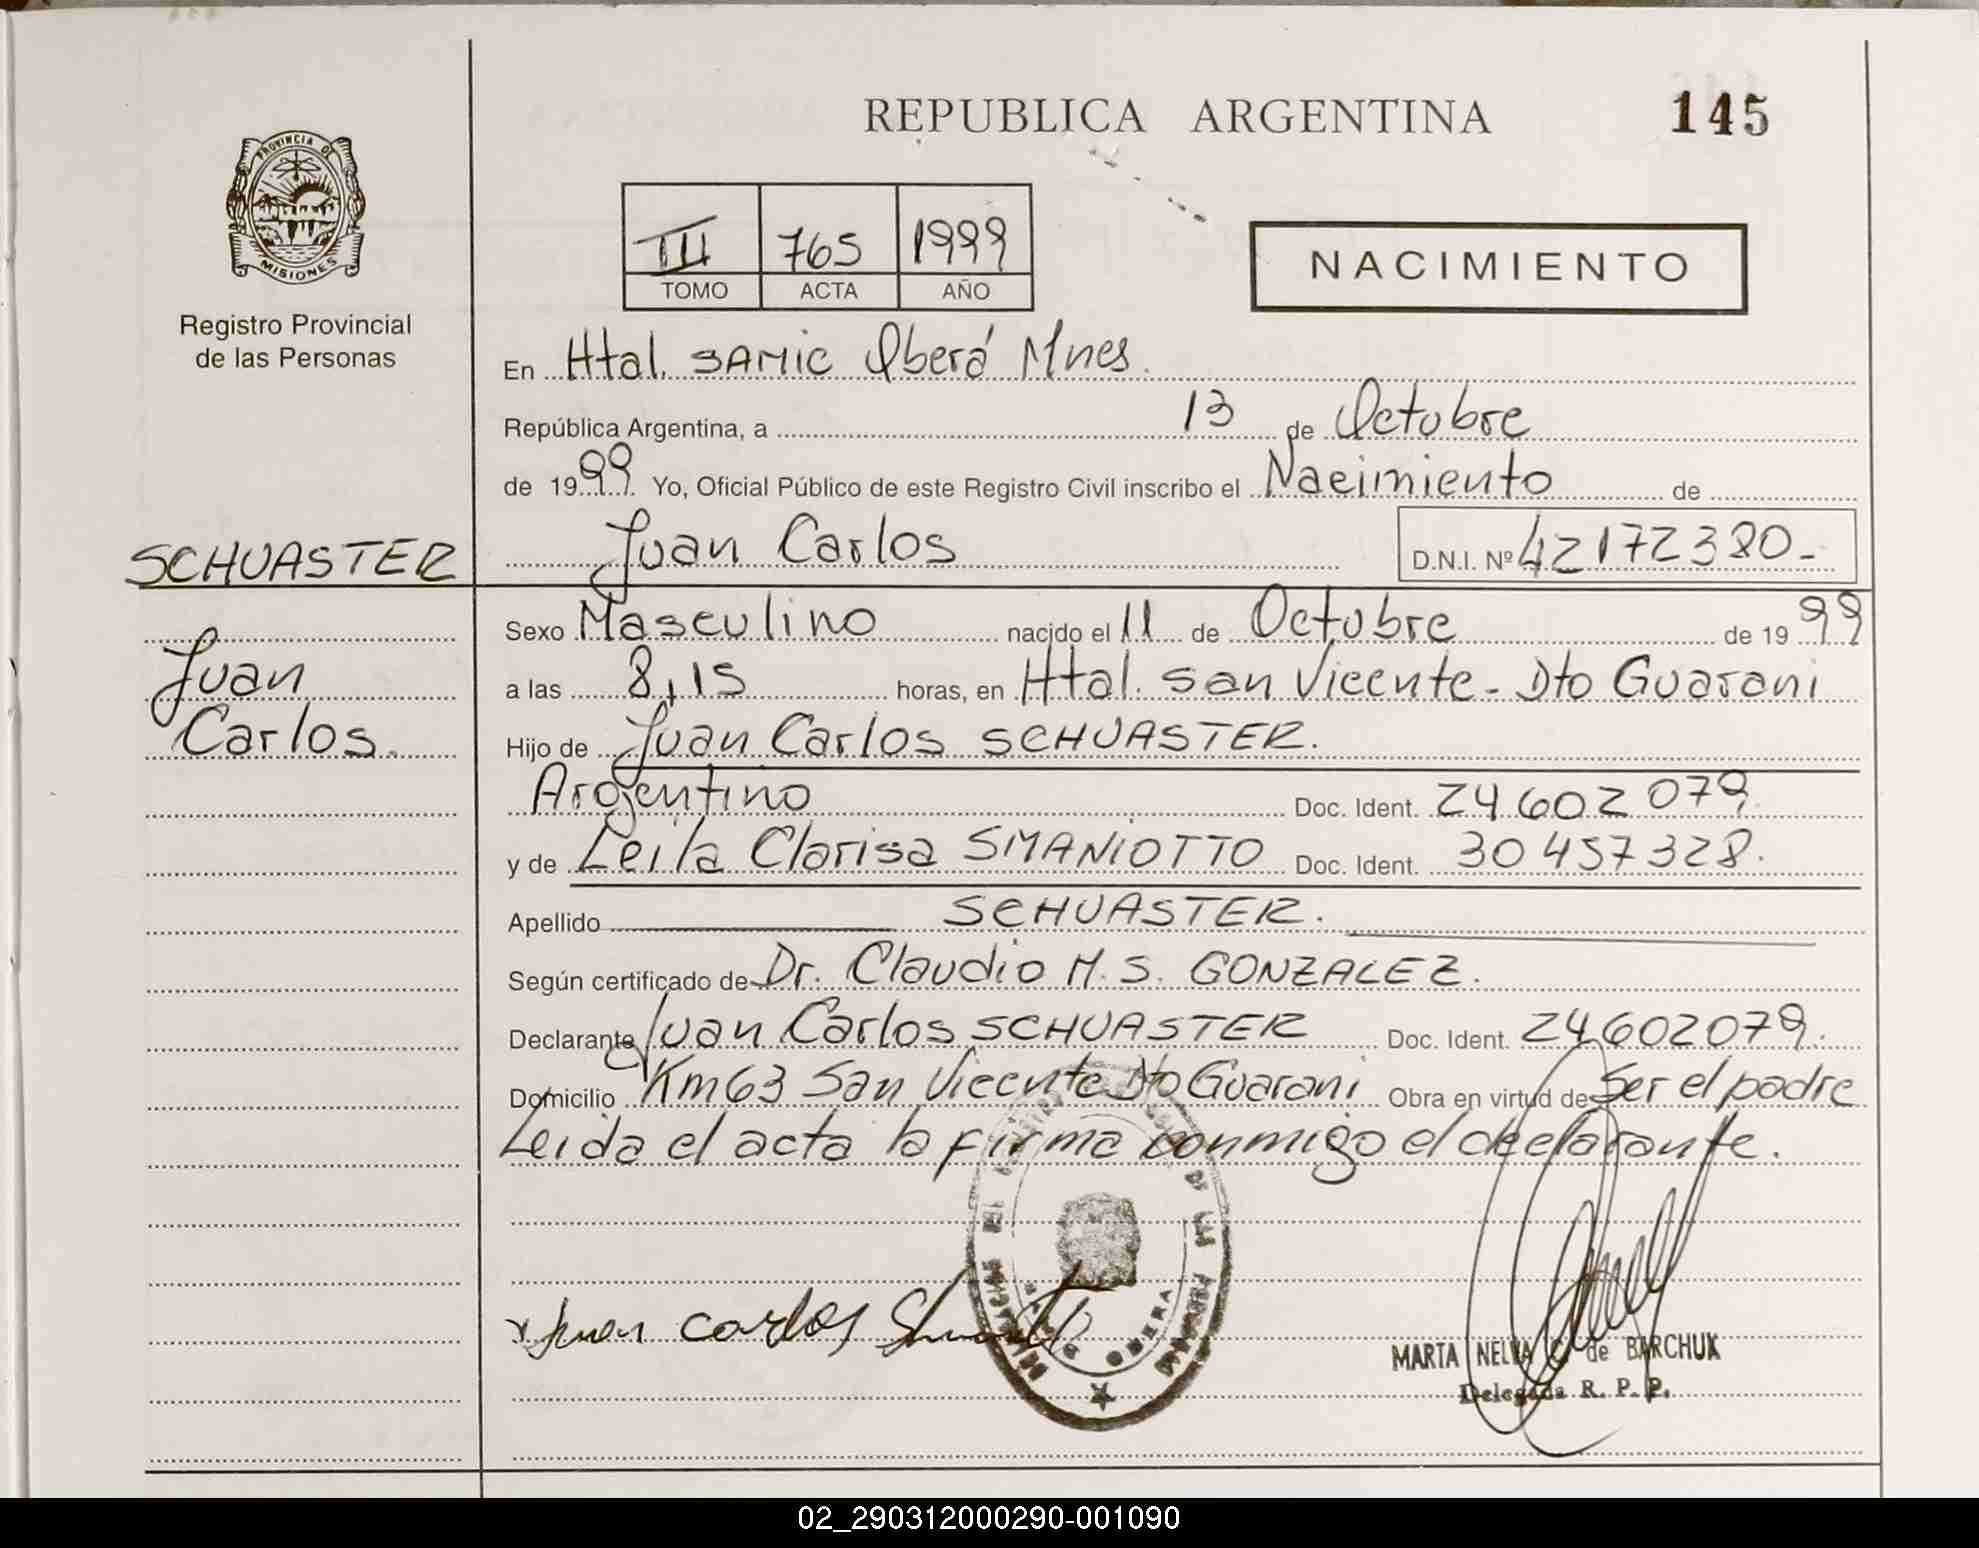 REPUBLICA ARGENTINA
145
PROVINCIA DE
MISIONES
Registro Provincial
de las Personas
III 765 1999
TOMO ACTA AÑO
NACIMIENTO
En Htal. SAMIC Oberá Mnes.
República Argentina, a 13 de Octubre
de 1999 Yo, Oficial Público de este Registro Civil inscribo el Nacimiento de
Juan Carlos D.N.I. Nº 42172380-
SCHUASTER
Juan
Carlos.
Sexo Masculino nacido el 11 de Octubre de 1999
a las 8,15 horas, en Htal. San Vicente - Dto Guarani
Hijo de Juan Carlos SCHUASTER.
Argentino Doc. Ident. 24602079
y de Leila Clarisa SMANIOTTO Doc. Ident. 30457328.
Apellido SCHUASTER.
Según certificado de Dr. Claudio M. S. GONZALEZ.
Declarante Juan Carlos SCHUASTER Doc. Ident. 24602079.
Domicilio Km63 San Vicente Dto Guarani Obra en virtud de Ser el padre
Leida el acta la firma conmigo el declarante.
Juan Carlos
OBERA
MARTA NELVA C. de BARCHUK
Delegada R. P. P.
02_290312000290-001090